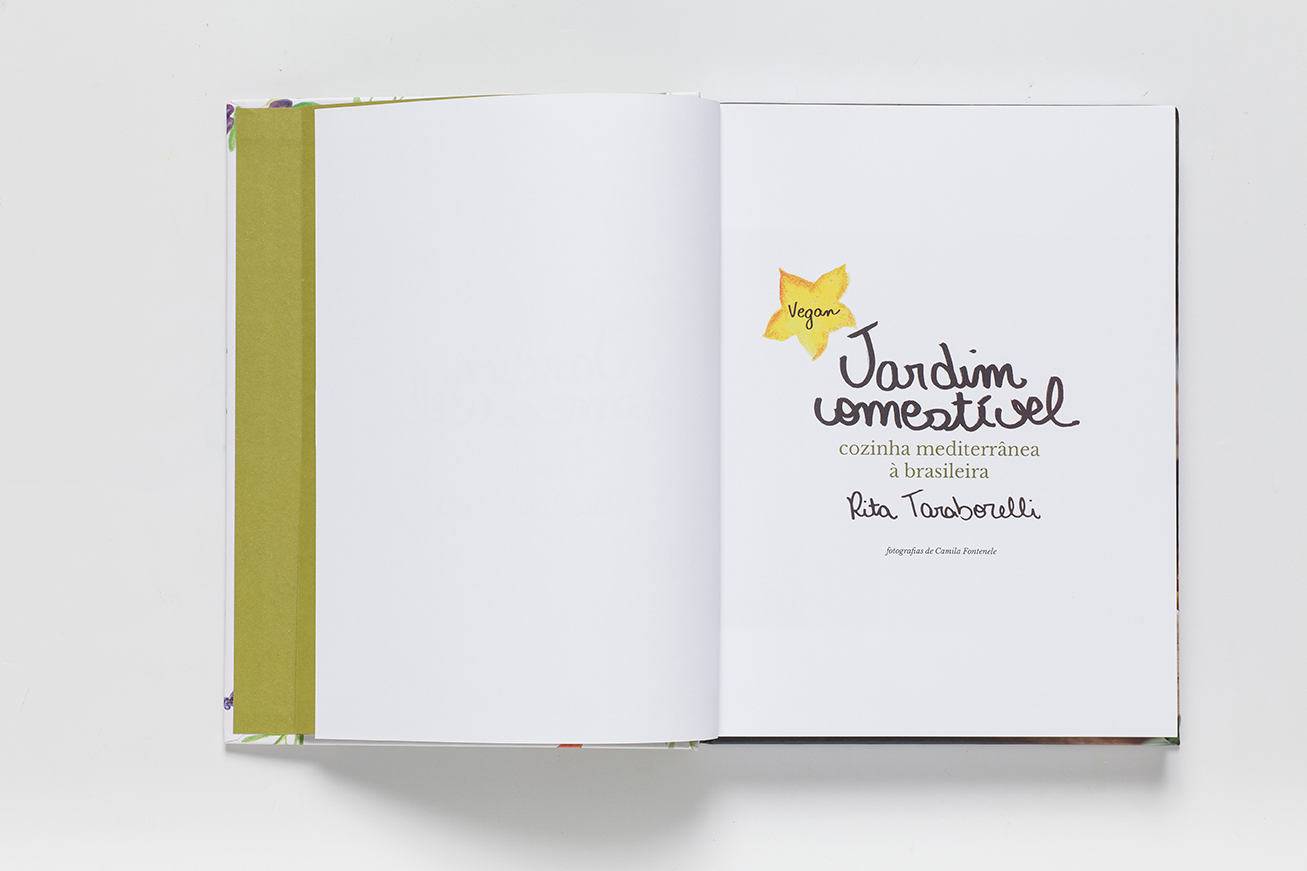 Vegan
Jardim
comestível
cozinha mediterrânea
à brasileira
Rita Taraborelli
fotografias de Camila Fontenele